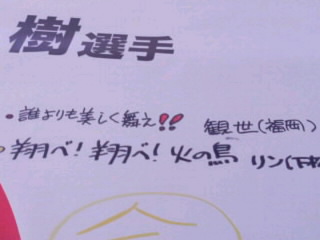 樹選手
・誰よりも美しく舞え!! 観世(福岡)
翔べ!翔べ!火の鳥 リン(下松
金